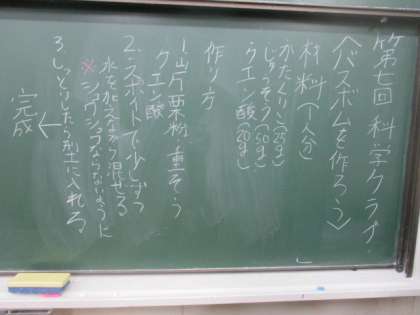 第七回 科学クラブ
〈バスボムを作ろう〉
材料(1人分)
かたくりこ(25g)
じゅうそう(50g)
クエン酸(20g)
作り方
1.片栗粉、重そう
クエン酸
2.スポイトで少しずつ
水を加えよく混ぜる
※シュワシュワならないように
3.しっとりしたら型に入れる
完成